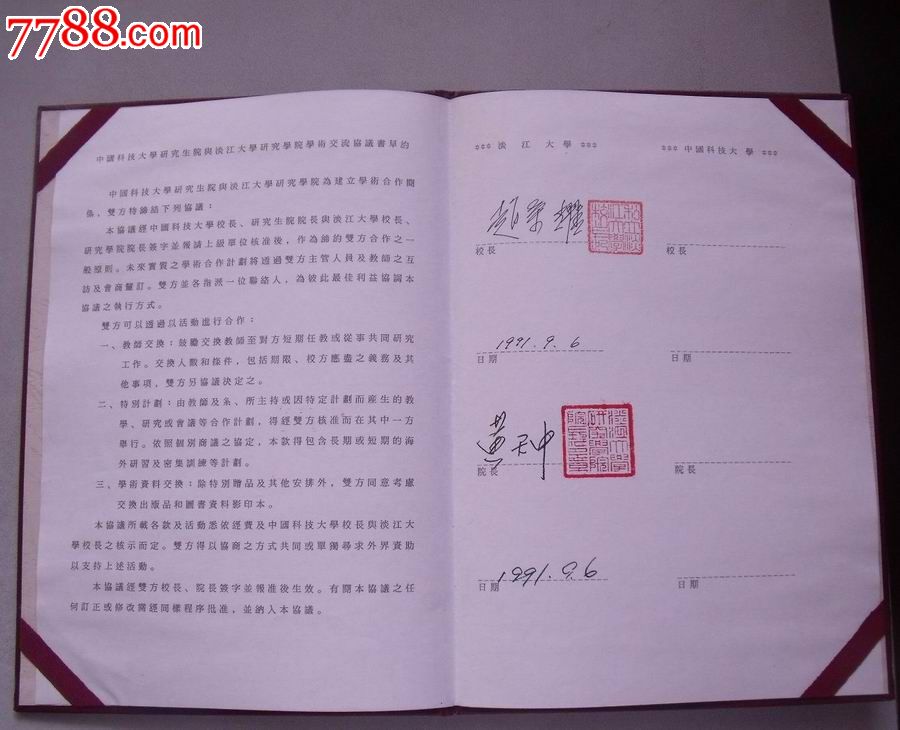 7788.com
中國科技大學研究生院與淡江大學研究學院學術交流協議書草約
中國科技大學研究生院與淡江大學研究學院為建立學術合作關
係，雙方特締結下列協議：
本協議經中國科技大學校長、研究生院院長與淡江大學校長、
研究學院院長簽字並報請上級單位核准後，作為締約雙方合作之一
般原則。未來實質之學術合作計劃將透過雙方主管人員及教師之互
訪及會商釐訂。雙方並各指派一位聯絡人，為彼此最佳利益協調本
協議之執行方式。
雙方可以透過以活動進行合作：
一、教師交換：鼓勵交換教師至對方短期任教或從事共同研究
工作。交換人數和條件，包括期限、校方應盡之義務及其
他事項，雙方另協議決定之。
二、特別計劃：由教師及系、所主持或因特定計劃而產生的教
學、研究或會議等合作計劃，得經雙方核准而在其中一方
舉行。依照個別商議之協定，本款得包含長期或短期的海
外研習及密集訓練等計劃。
三、學術資料交換：除特別贈品及其他安排外，雙方同意考慮
交換出版品和圖書資料影印本。
本協議所載各款及活動悉依經費及中國科技大學校長與淡江大
學校長之核示而定。雙方得以協商之方式共同或單獨尋求外界資助
以支持上述活動。
本協議經雙方校長、院長簽字並報准後生效。有關本協議之任
何訂正或修改需經同樣程序批准，並納入本協議。
*** 淡 江 大 學 ***
*** 中國科技大 學 ***
校長
校長
1991. 9. 6
日期
日期
院長
院長
1991. 9. 6
日期
日期